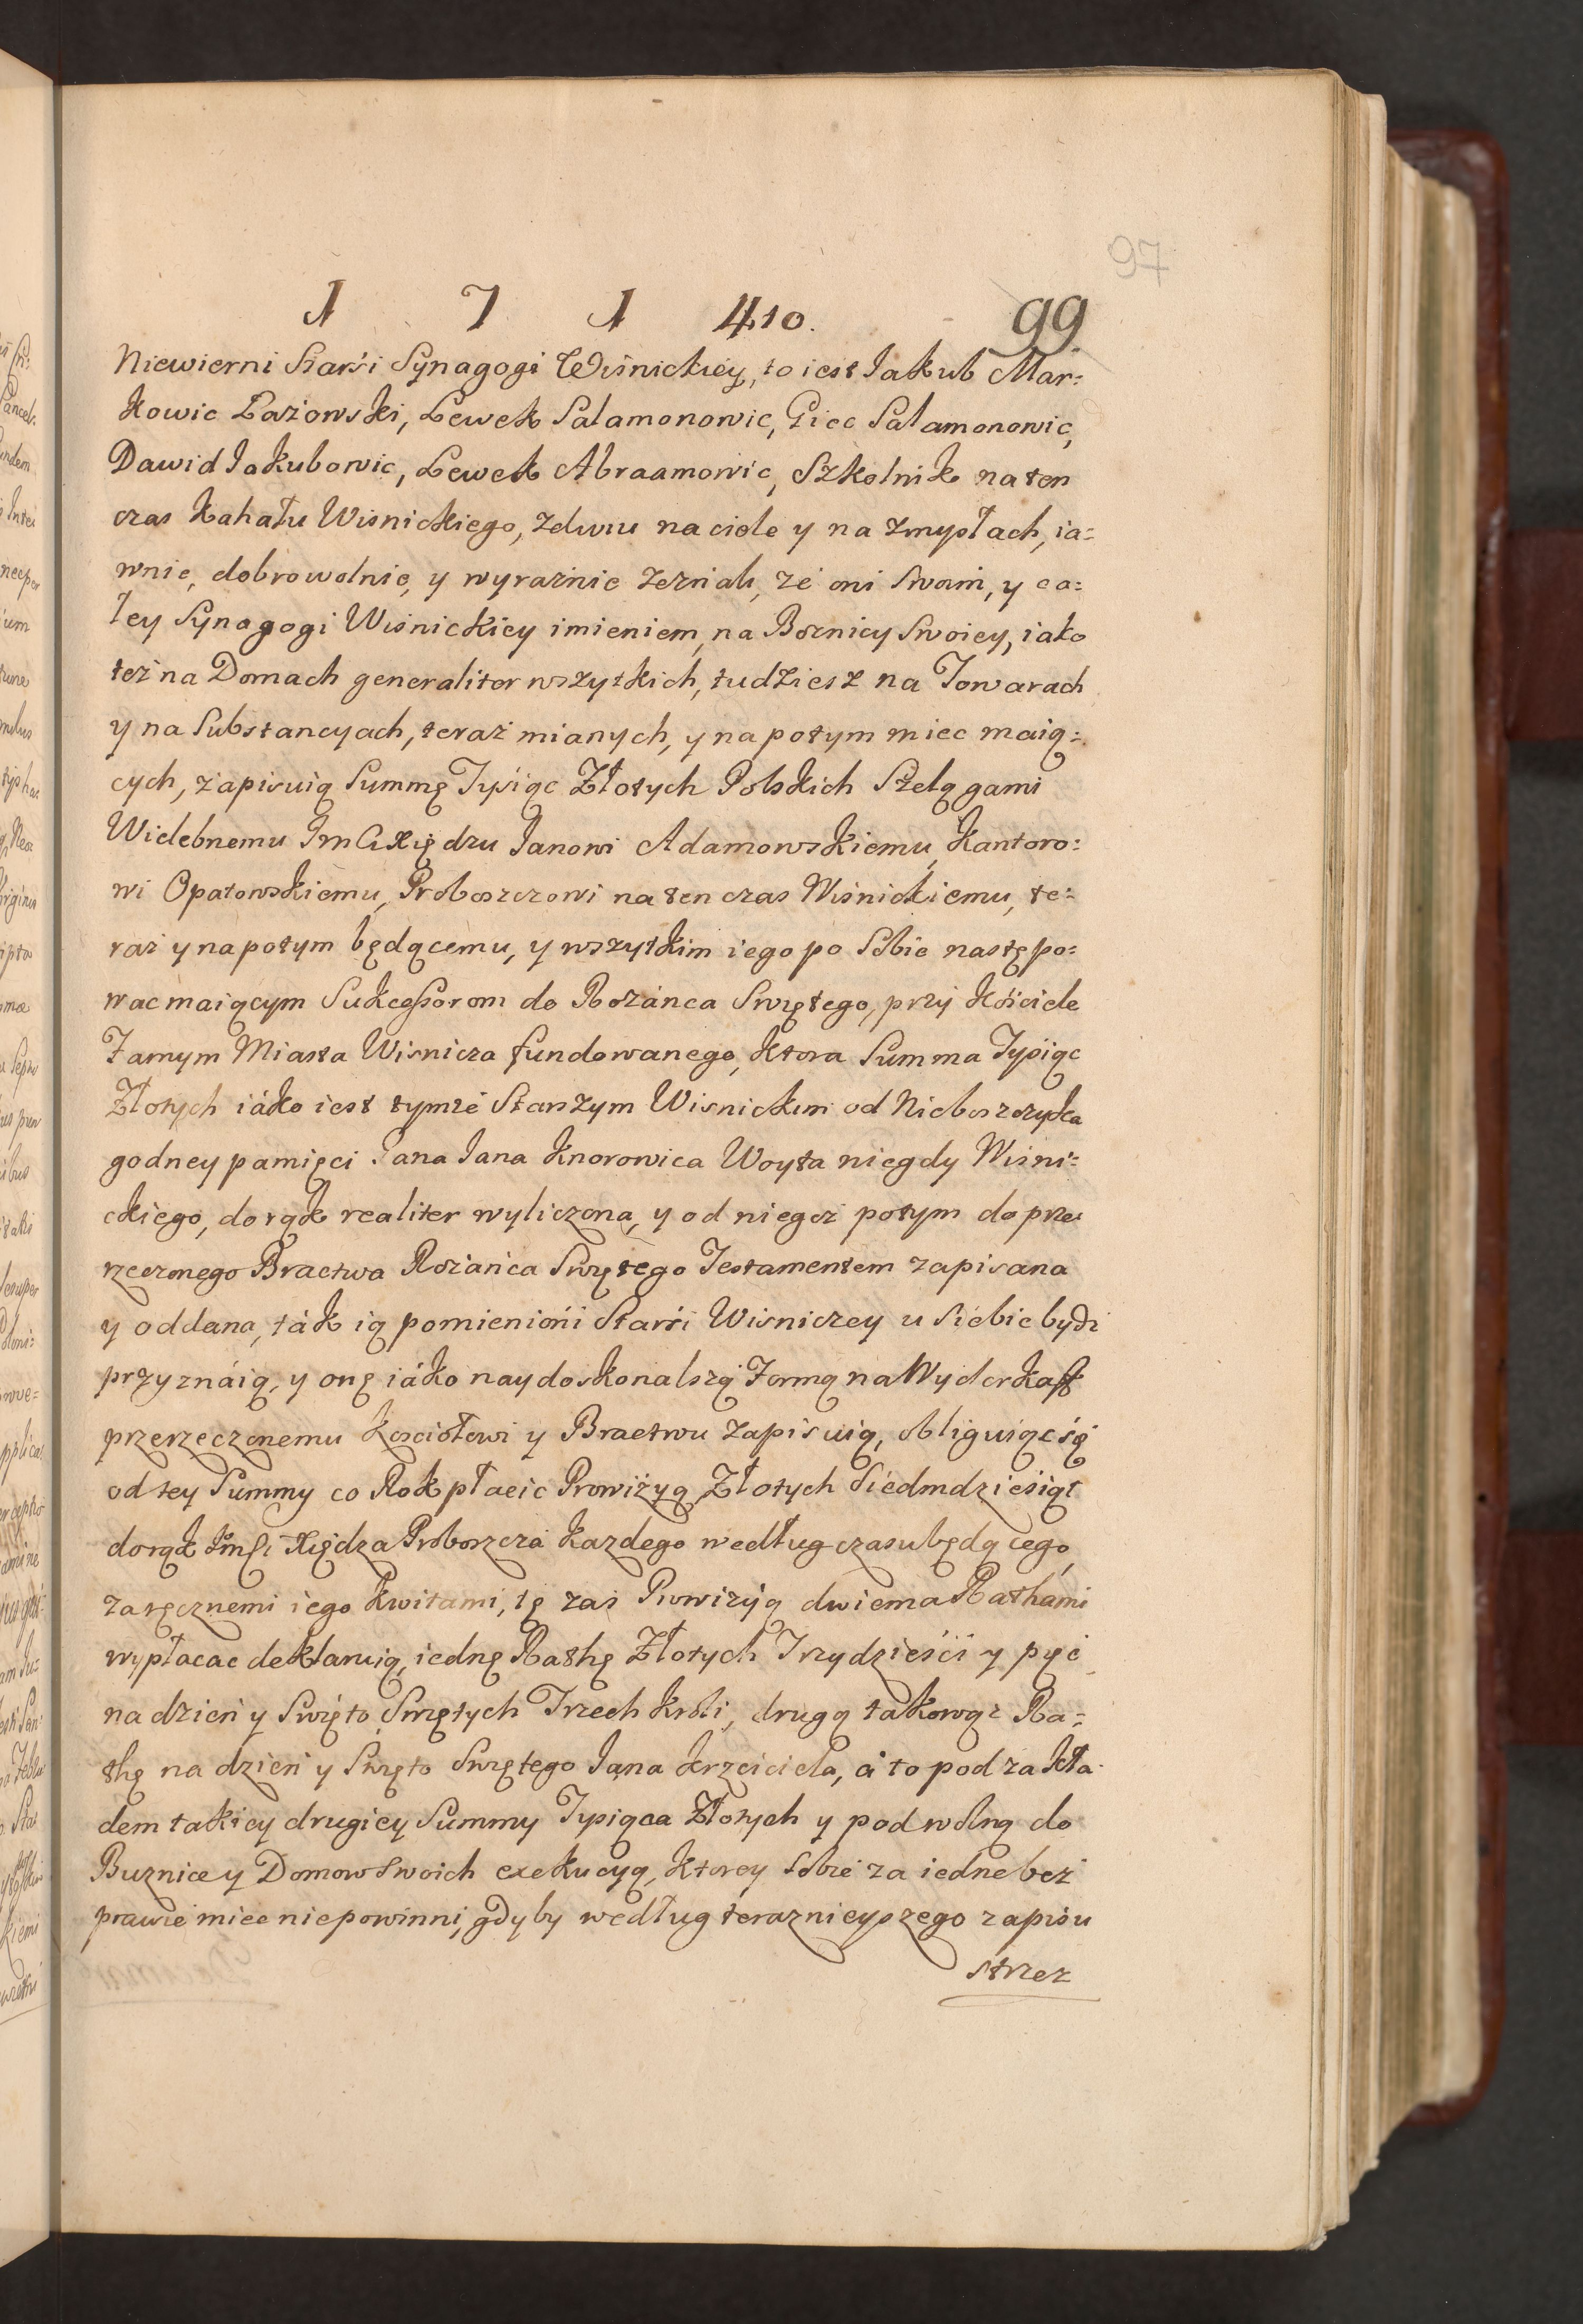 97
1 7 1 4to. 99
Niewierni Starśi Synagogi Wiśnickiey, to iest Jakub Mar:
kowic Łażowski, Lewek Salamonowic, Giec Salamonowic,
Dawid Jakubowic, Lewek Abraamowic, Szkolnik na ten
czas kahału Wiśnickiego, zdrwu na ciele y na zmysłach, ia:
wnie, dobrowolnie, y wyraźnie zeznali, że oni swoim, y ca:
łey Synagogi Wiśnickiey imieniem, na Bożnicy Swoiey, iako
też na Domach generaliter wszytkich, tudziesz na Towarach
y na Substancyach, teraz mianych, y napotym miec maią:
cych, zapisuią Summę Tysiąc Złotych Polskich Szelągami
Wielebnemu Jmć Xiędzu Janowi Adamowskiemu, kantoro:
wi Opatowskiemu, Proboszczowi na ten czas Wiśnickiemu, te:
raz y napotym będącemu, y wszytkim iego po Sobie nastepo:
wac maiącym Sukcessorom do Rozanca Swiętego, przy kościele
Farnym Miasta Wisnicza fundowanego, ktora Summa Tysiąc
Złotych iáko iest tymże Starszym Wisnickim od Nieboszczyka
godney pamięci Pana Jana Knorowica Woyta niegdy Wiśni:
ckiego, do rąk realiter wyliczona, y od niegoż potym do prze
rzeczonego Bractwa Rożańca Swiętego Testamentem zapisana
y oddana, ták ią pomienióni Starśi Wisniczey u Siebie bydź
przyznáią, y onę iáko naydoskonalszą Formą na Wyderkaff
przerzeczonemu kosciołowi y Bractwu zapisuią, obliguiąc śię
od tey Summy co Rok płacic Prowizyą Złotych Siedmdzieśiąt
do rąk Jmści Xiędza Proboszcza kazdego według czasu będącego,
za ręcznemi iego kwitami, tę zaś Prowizyą dwiema Rathami
wypłacac deklaruią, iednę Rathę Złotych Trzydzieśći y pięć
na dzień y Swięto Swiętych Trzech kroli, drugą takowąż Ra:
thę na dzień y Swięto Swiętego Jana krzciciela, a to pod zakła
dem takiey drugiey Summy Tysiąca Złotych y pod wolną do
Buznice y Domow Swoich exekucyą, ktorey Sobie za iedne bez
prawie miec niepowinni, gdyby według teraznieyszego zapisu
strzez